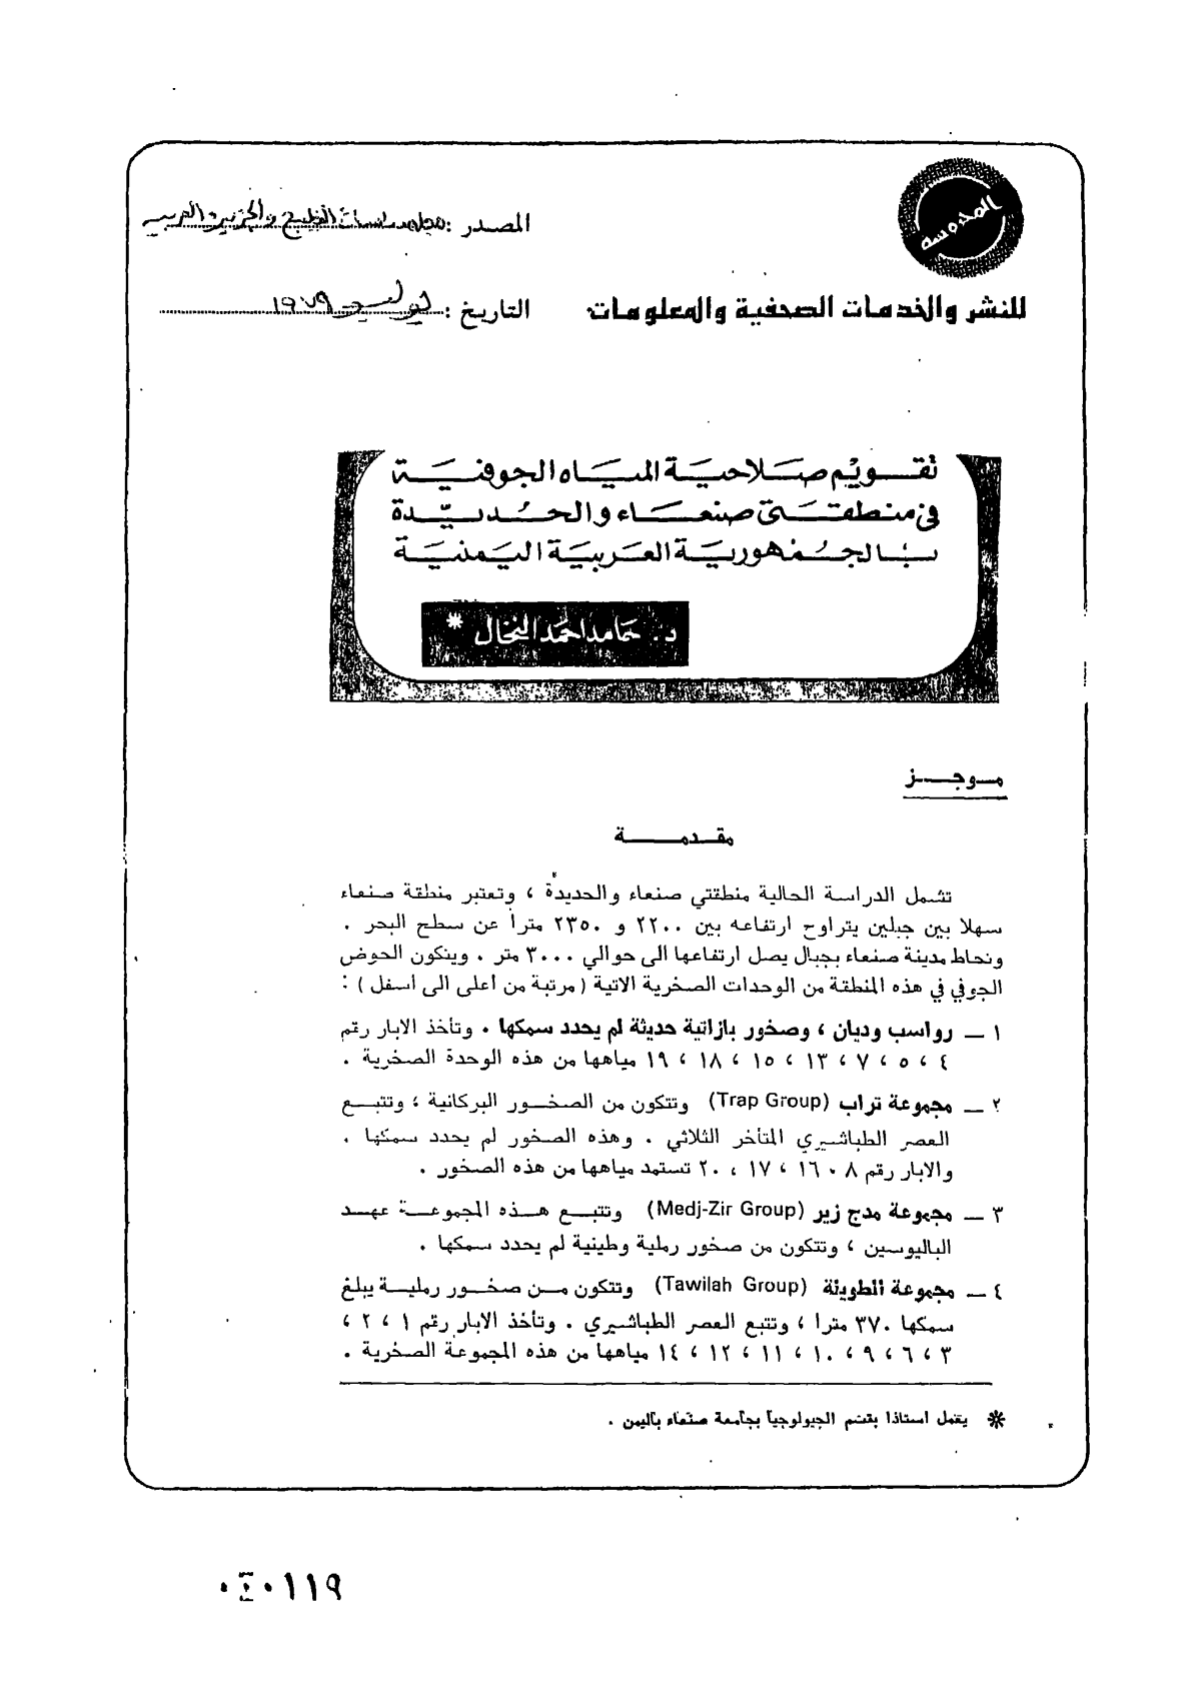 المحروسة
المصدر : مجلة دراسات الخليج والجزيرة العربية
للنشر والخدمات الصحفية والمعلومات
التاريخ : يوليو ١٩٧٩
تقويم صلاحية المياه الجوفية
في منطقتي صنعاء والحديدة
بالجمهورية العربية اليمنية
د. حامد احمد النخال *
موجز
مقدمة
تشمل الدراسة الحالية منطقتي صنعاء والحديدة ، وتعتبر منطقة صنعاء
سهلا بين جبلين يتراوح ارتفاعه بين ٢٢٠٠ و ٢٣٥٠ مترا عن سطح البحر .
وتحاط مدينة صنعاء بجبال يصل ارتفاعها الى حوالي ٣٠٠٠ متر . ويتكون الحوض
الجوفي في هذه المنطقة من الوحدات الصخرية الاتية ( مرتبة من أعلى الى أسفل ) :
١ — رواسب وديان ، وصخور بازاتية حديثة لم يحدد سمكها . وتأخذ الابار رقم
٤ ، ٥ ، ٧ ، ١٣ ، ١٥ ، ١٨ ، ١٩ مياهها من هذه الوحدة الصخرية .
٢ — مجموعة تراب (Trap Group) وتتكون من الصخور البركانية ، وتتبع
العصر الطباشيري المتأخر الثلاثي . وهذه الصخور لم يحدد سمكها .
والابار رقم ٨ ، ١٦ ، ١٧ ، ٢٠ تستمد مياهها من هذه الصخور .
٣ — مجموعة مدج زير (Medj-Zir Group) وتتبع هذه المجموعة عهد
الباليوسين ، وتتكون من صخور رملية وطينية لم يحدد سمكها .
٤ — مجموعة الطويلة (Tawilah Group) وتتكون من صخور رملية يبلغ
سمكها ٣٧٠ مترا ، وتتبع العصر الطباشيري . وتأخذ الابار رقم ١ ، ٢ ،
٣ ، ٦ ، ٩ ، ١٠ ، ١١ ، ١٢ ، ١٤ مياهها من هذه المجموعة الصخرية .
* يعمل استاذا بقسم الجيولوجيا بجامعة صنعاء باليمن .